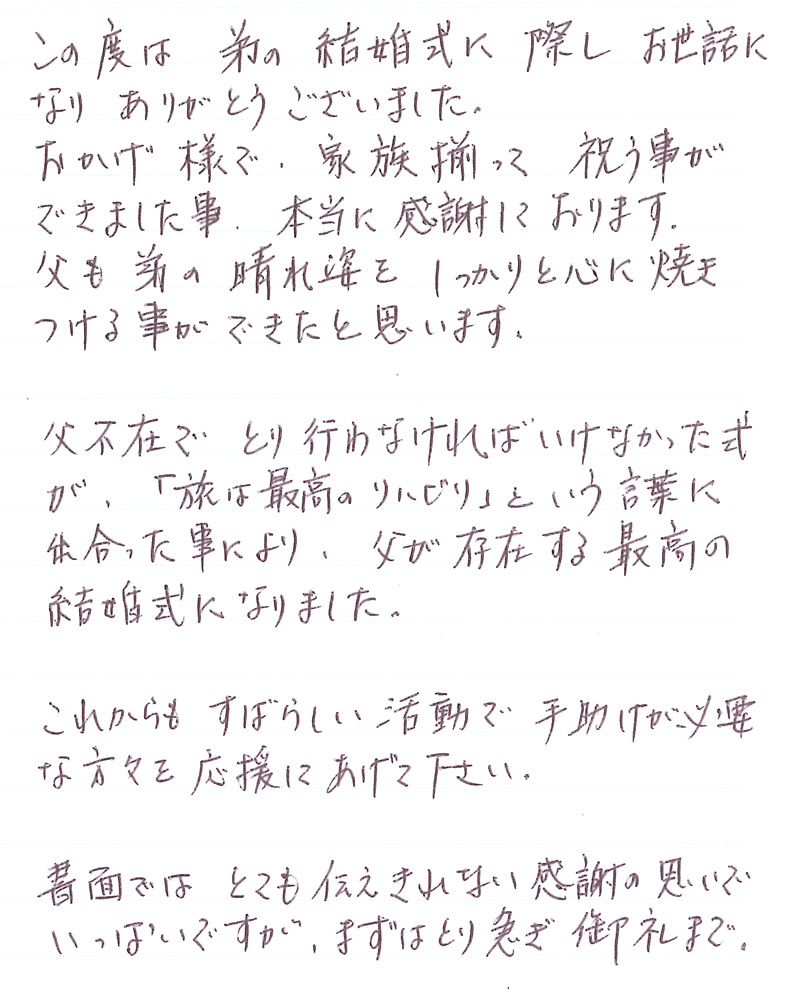 この度は 弟の 結婚式に 際し お世話に
なり ありがとうございました。
おかげ様で、家族揃って 祝う事が
できました事、本当に感謝しております。
父も 弟の 晴れ姿を しっかりと心に焼き
つける事ができたと思います。
父不在で とり行わなければいけなかった式
が、「旅は最高のリハビリ」という言葉に
出合った事により、父が存在する最高の
結婚式になりました。
これからも すばらしい活動で 手助けが必要
な方々を応援してあげて下さい。
書面では とても伝えきれない感謝の思いで
いっぱいですが、まずはとり急ぎ 御礼まで。